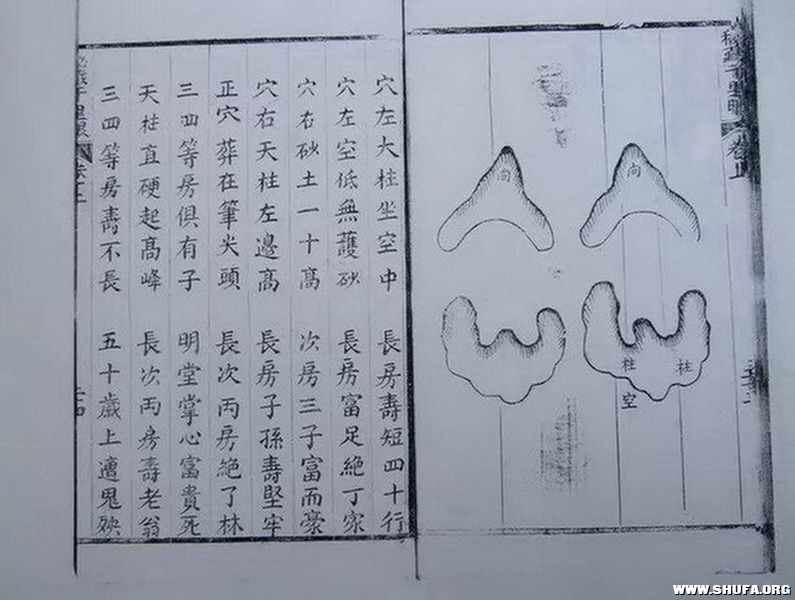 秘藏千里眼 卷上
向
向
柱 柱
空
穴左大柱坐空中 長房壽短四十行
穴左空低無護砂 長房富足絶丁家
穴右砂土一十高 次房三子富而豪
穴右天柱左邊高 長房子孫壽堅牢
正穴葬在筆尖頭 長次両房絶了林
三四等房俱有子 明堂掌心富貴死
天柱直硬起高峰 長次両房壽老翁
三四等房壽不長 五十歲上遭鬼殃
WWW.SHUFA.ORG